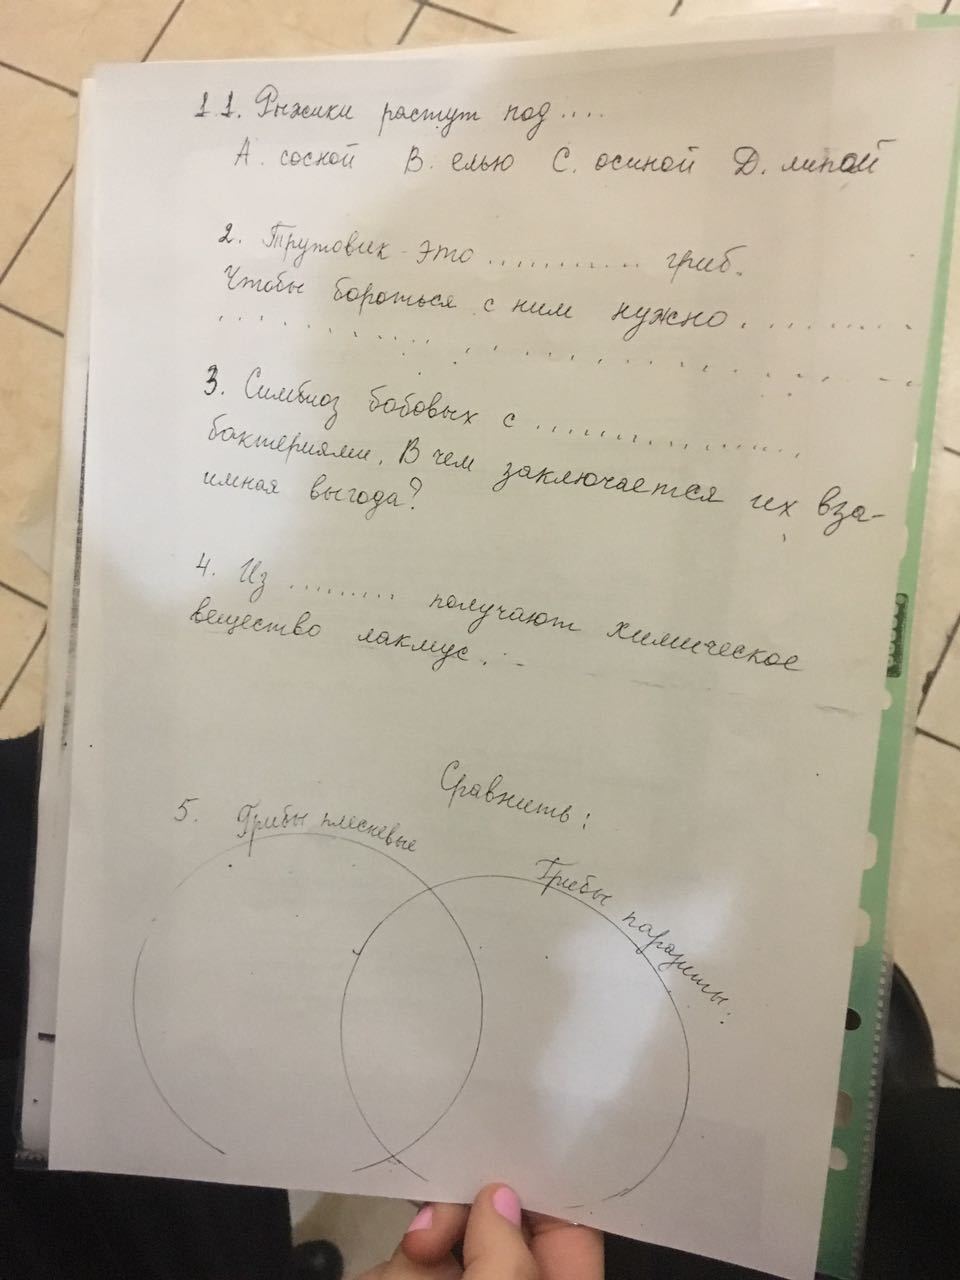 1.1. Рыжики растут под ....
А. сосной В. елью С. осиной Д. липой
2. Трутовик - это ............ гриб.
Чтобы бороться с ним нужно ..........
...................
3. Симбиоз бобовых с ................
бактериями. В чем заключается их вза-
имная выгода?
4. Из ......... получают химическое
вещество лакмус.
Сравнить:
5. Грибы плесневые
Грибы паразиты: